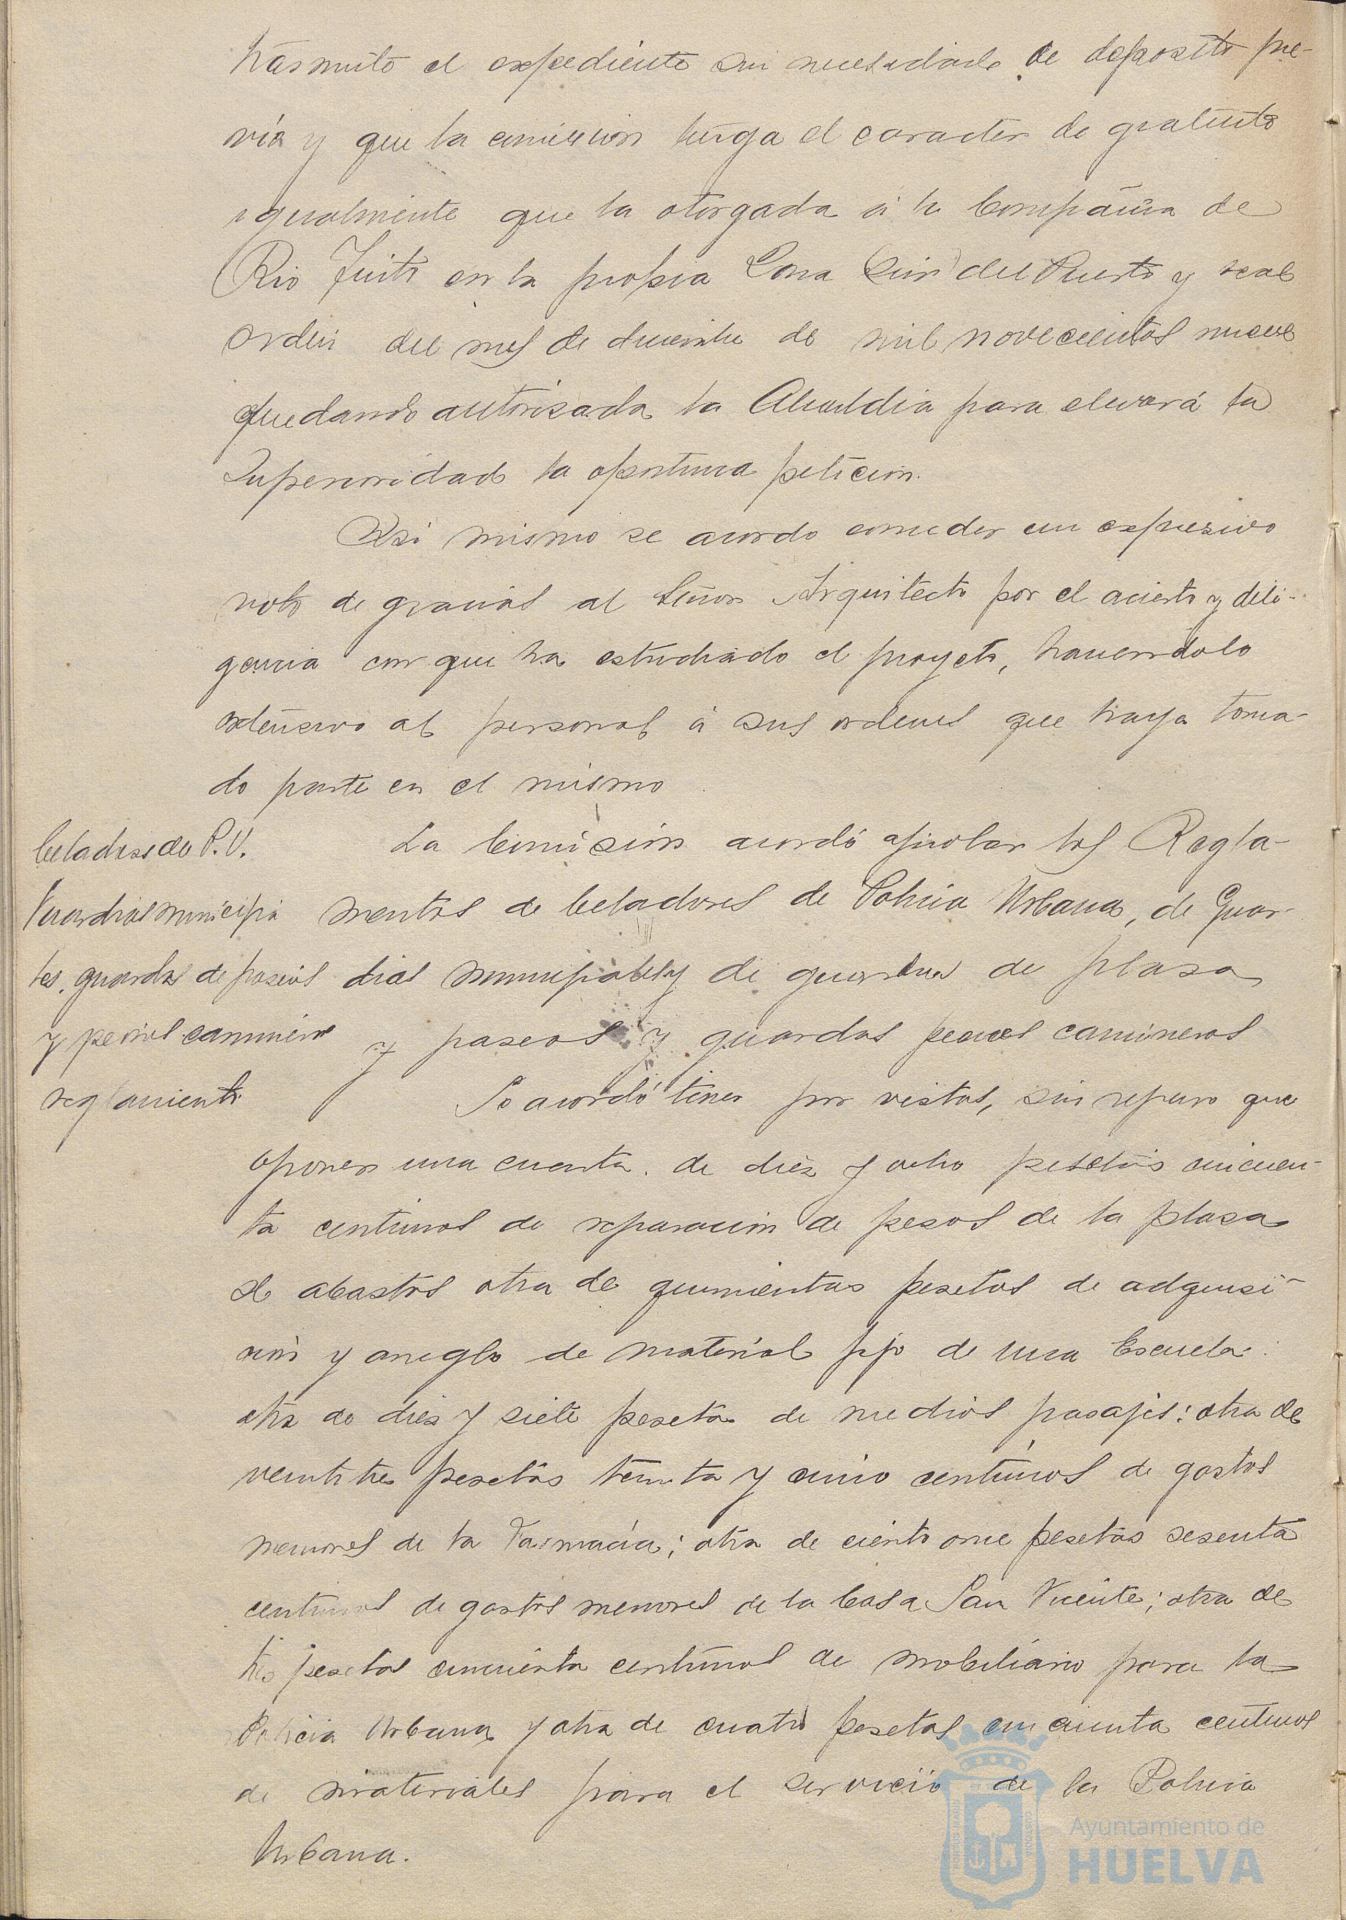 trasmito el expediente sin necesidad de deposito pre-
vio y que la concesion tenga el caracter de gratuito
igualmente que la otorgada á la Compañia de
Rio Tinto en la propia Zona del Puerto y real
orden del mes de diciembre de mil novecientos nueve
quedando autorizada la Alcaldia para elevar á la
Superioridad la oportuna peticion.
Asi mismo se acordo conceder un expresivo
voto de gracias al Señor Arquitecto por el acierto y dili-
gencia con que ha estudiado el proyecto, haciendolo
extensivo al personal á sus ordenes que haya toma-
do parte en el mismo
Celadores de P.U.
Guardias municipa
les, guardas de paseos
y peones camineros
reglamento
La Comision acordó aprobar los Regla-
mentos de Celadores de Policia Urbana, de Guar-
dias municipales y de guardas de plaza
y paseos y guardas peones camineros
Se acordó tener por vistas, sin reparo que
oponer una cuenta de diez y ocho pesetas cincuen-
ta centimos de reparacion de pesos de la plaza
de abastos otra de quinientas pesetas de adquisi-
cion y arreglo de material fijo de una Escuela:
otra de diez y siete pesetas de medios pasajes: otra de
veintitres pesetas treinta y cinco centimos de gastos
menores de la Farmacia; otra de ciento once pesetas sesenta
centimos de gastos menores de la Casa San Vicente; otra de
tres pesetas cincuenta centimos de mobiliario para la
Policia Urbana y otra de cuatro pesetas cincuenta centimos
de materiales para el servicio de la Policia
Urbana.
Ayuntamiento de
HUELVA